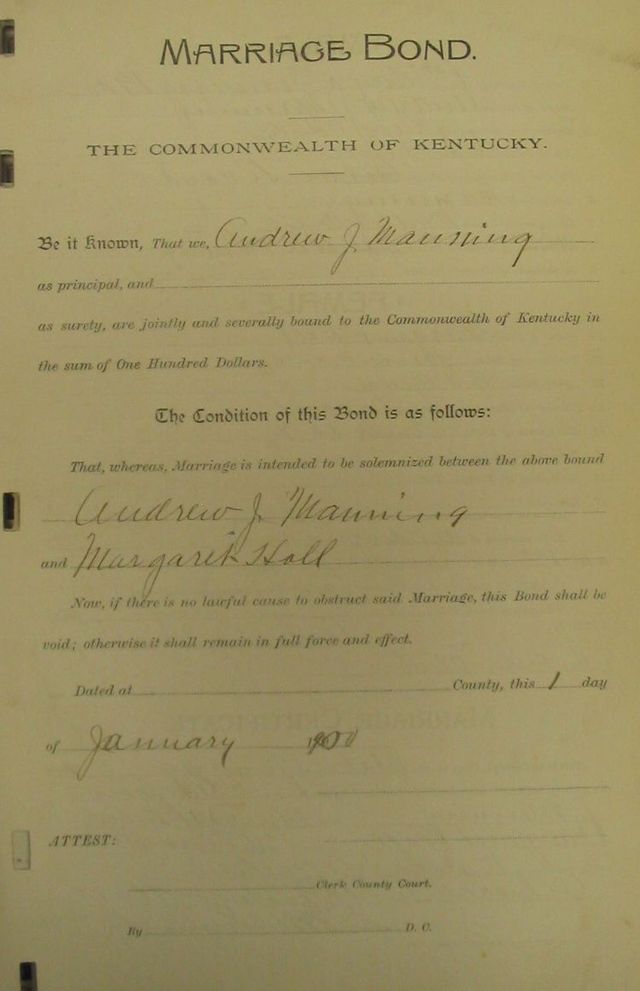 MARRIAGE BOND.
THE COMMONWEALTH OF KENTUCKY.
Be it known, That we, Andrew J. Manning
as principal, and
as surety, are jointly and severally bound to the Commonwealth of Kentucky in
the sum of One Hundred Dollars.
The Condition of this Bond is as follows:
That, whereas, Marriage is intended to be solemnized between the above bound
Andrew J. Manning
and Margaret Hall
Now, if there is no lawful cause to obstruct said Marriage, this Bond shall be
void; otherwise it shall remain in full force and effect.
Dated at County, this 1 day
of January 1900
ATTEST:
Clerk County Court.
By D. C.